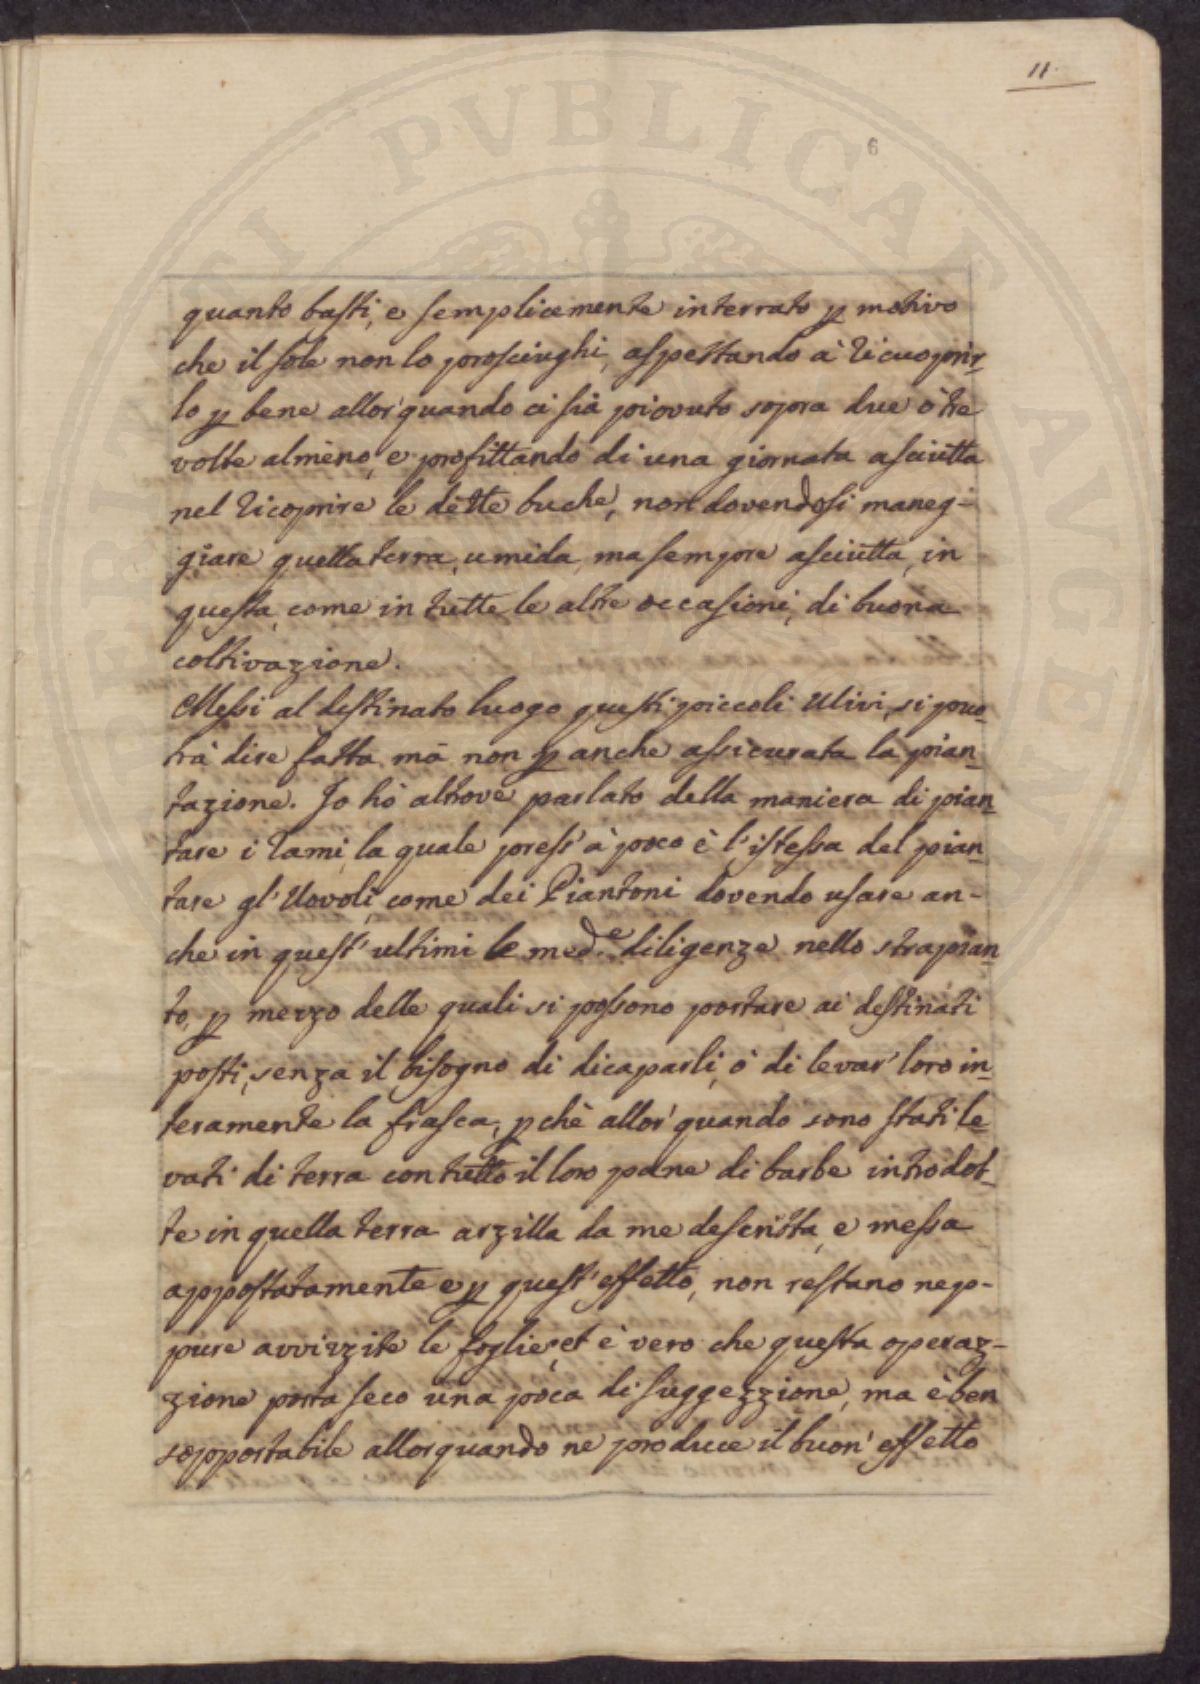 11.
6
quanto basti, e semplicemente interrato p motivo
che il sole non lo prosciughi, aspettando à ricuoprir_
lo p bene allor'quando ci sia piovuto sopra due ò tre
volte almeno, e profittando di una giornata asciutta
nel ricoprire le dette buche, non dovendosi maneg-
giare quella terra umida, ma sempre asciutta, in
questa, come in tutte le altre occasioni, di buona
coltivazione.
Messi al destinato luogo questi piccoli Ulivi, si puo_
trà dire fatta, mà non p anche assicurata la pian_
tazione. Io hò altrove parlato della maniera di pian_
tare i rami, la quale press' à poco è l'istessa del pian_
tare gl' Uovoli, come dei Piantoni dovendo usare an-
che in quest' ultimi le med.e diligenze nello strapian_
to, p mezzo delle quali si possono portare ai destinati
posti, senza il bisogno di dicaparli, ò di levar' loro in_
teramente la frasca, pchè allor'quando sono stati le_
vati di terra con tutto il loro pane di barbe introdot_
te in quella terra arzilla da me descritta, e messa
appostatamente e p quest' effetto, non restano nep-
pure avvizzite le foglie; et è vero che questa operaz-
zione porta seco una poca di suggezzione, ma è ben
sopportabile allorquando ne produce il buon' effetto